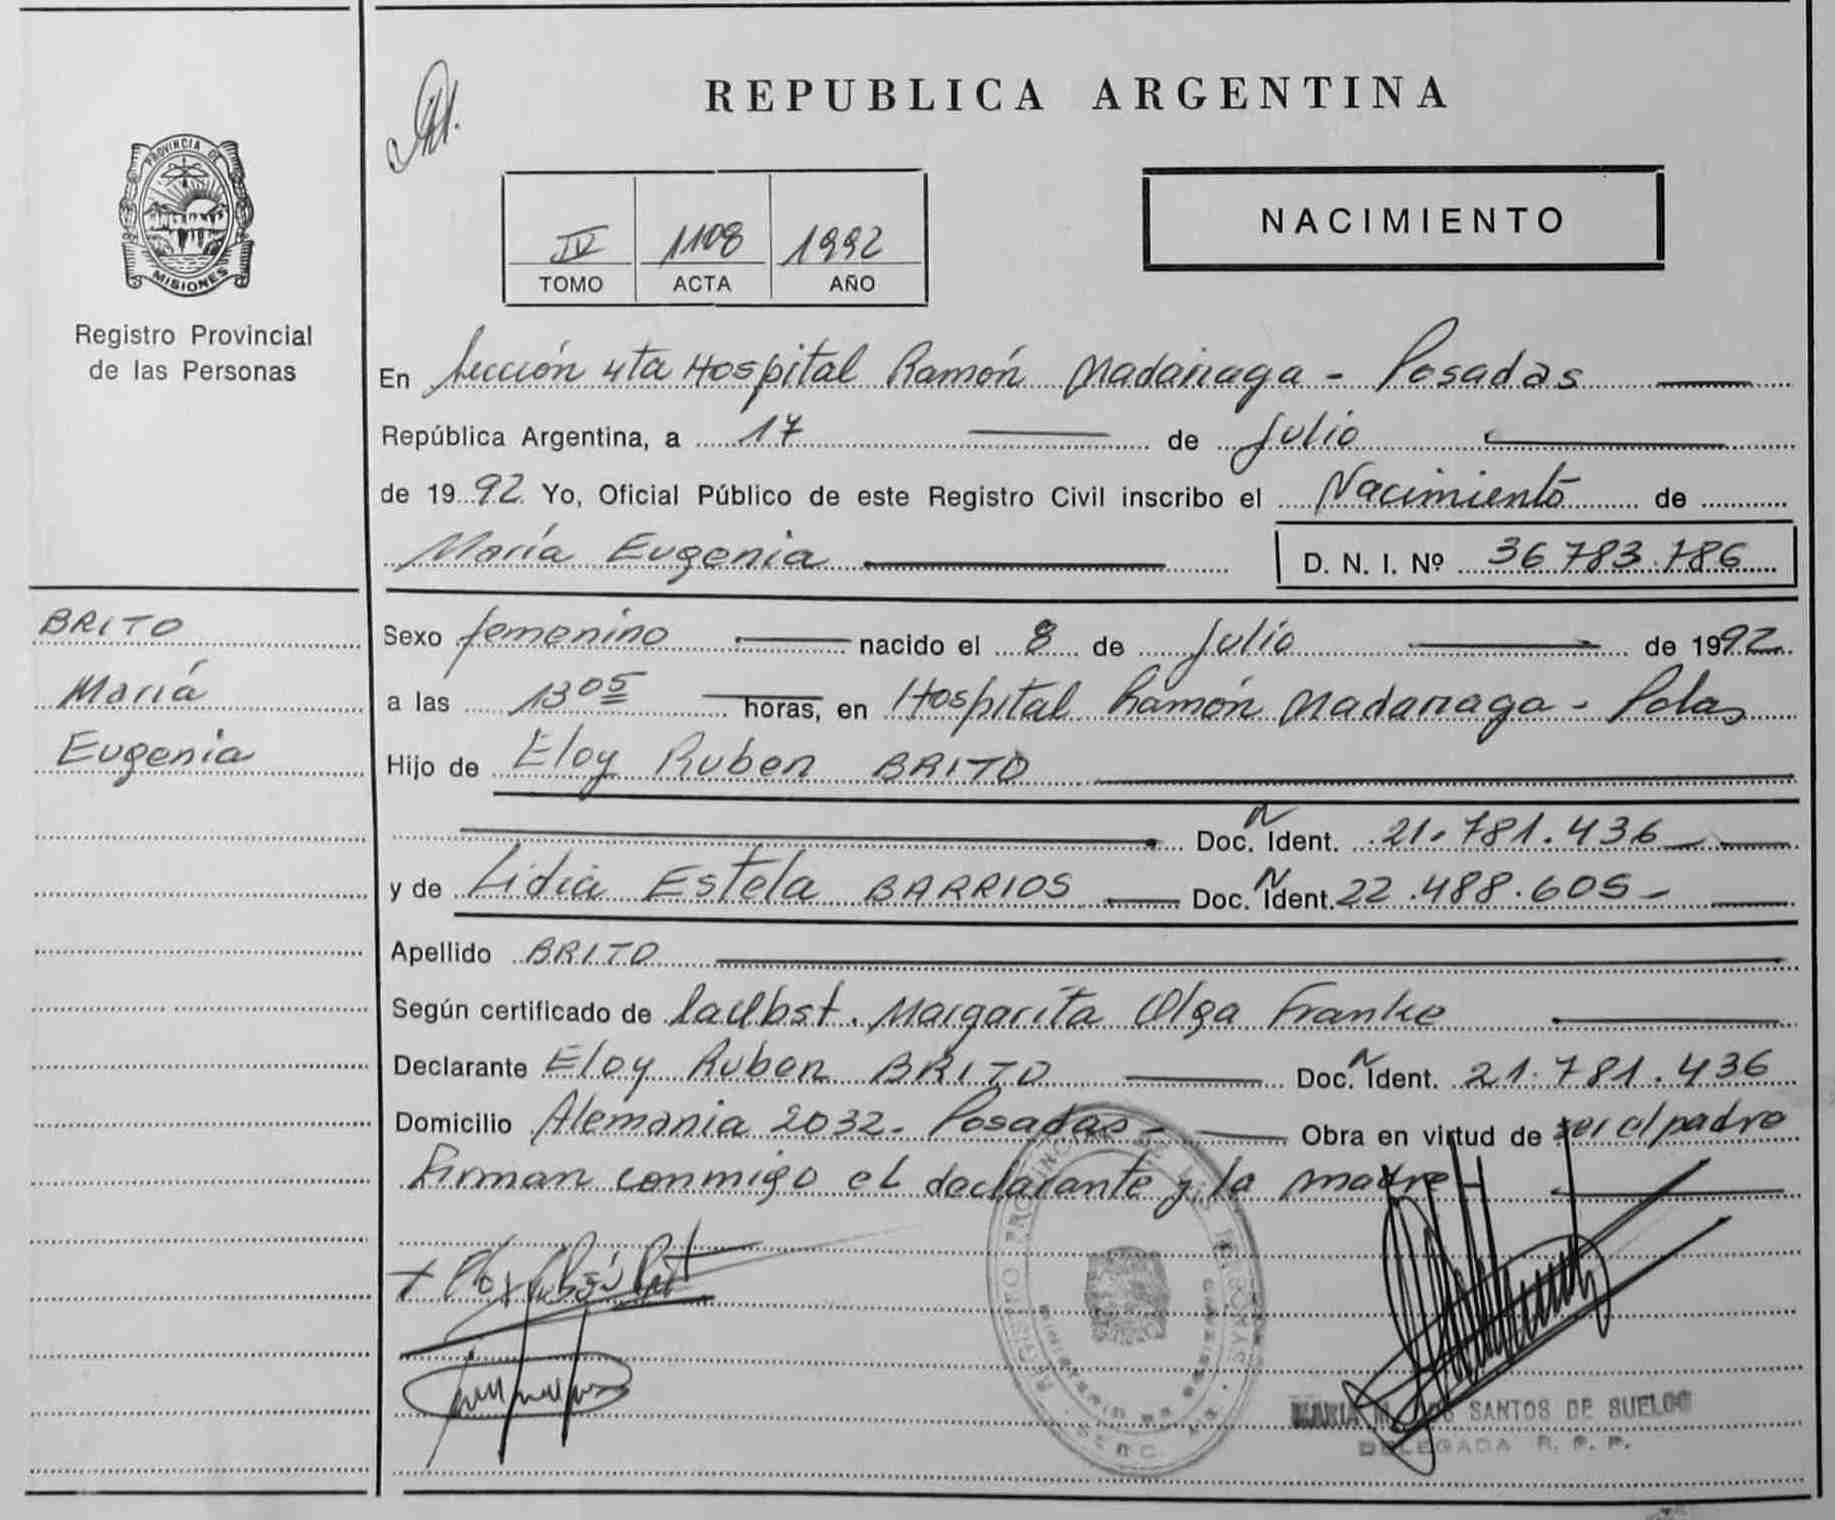 REPUBLICA ARGENTINA
PROVINCIA DE
MISIONES
Registro Provincial
de las Personas
NACIMIENTO
IV 1108 1992
TOMO ACTA AÑO
En Sección 4ta Hospital Ramón Madariaga - Posadas
República Argentina, a 17 de Julio
de 1992 Yo, Oficial Público de este Registro Civil inscribo el Nacimiento de
María Eugenia D. N. I. Nº 36.783.786
BRITO
María
Eugenia
Sexo femenino nacido el 8 de Julio de 1992
a las 13 05 horas, en Hospital Ramón Madariaga - Pdas
Hijo de Eloy Ruben BRITO
Doc. N Ident. 21.781.436
y de Lidia Estela BARRIOS Doc. N Ident. 22.488.605-
Apellido BRITO
Según certificado de la Obst. Margarita Olga Franke
Declarante Eloy Ruben BRITO Doc. N Ident. 21.781.436
Domicilio Alemania 2032- Posadas- Obra en virtud de ser el padre
Firman conmigo el declarante y la madre
SANTOS DE SUELOS
DELEGADA R. P. P.